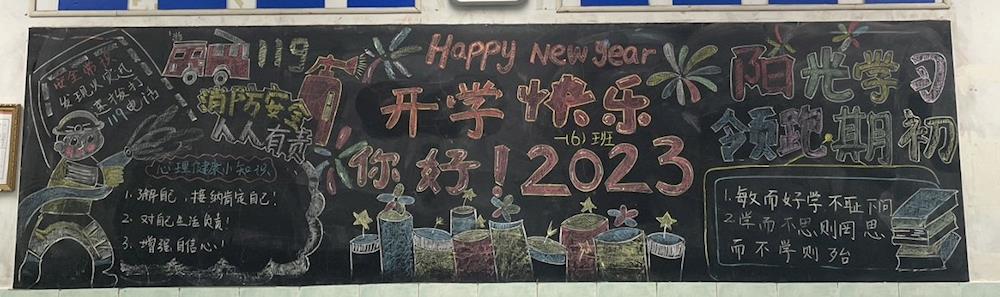 安全常识
发现火灾迅
速拨打
119电话
119
消防安全
人人有责
心理健康小知识
1. 了解自己，接纳肯定自己！
2. 对自己生活负责！
3. 增强自信心！
Happy New year
开学快乐
一(6)班
你好！2023
阳光学习
领跑期初
1.敏而好学不耻下问
2.学而不思则罔思
而不学则殆